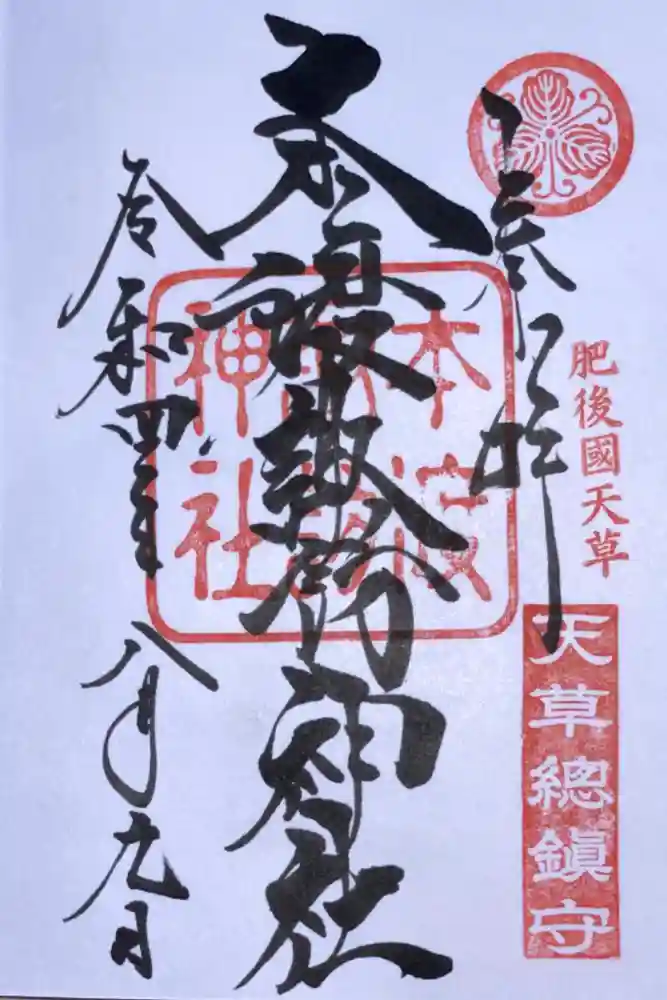 肥後國天草
天草總鎮守
奉拝
本渡諏訪神社
本渡
諏訪
神社
令和四年八月九日